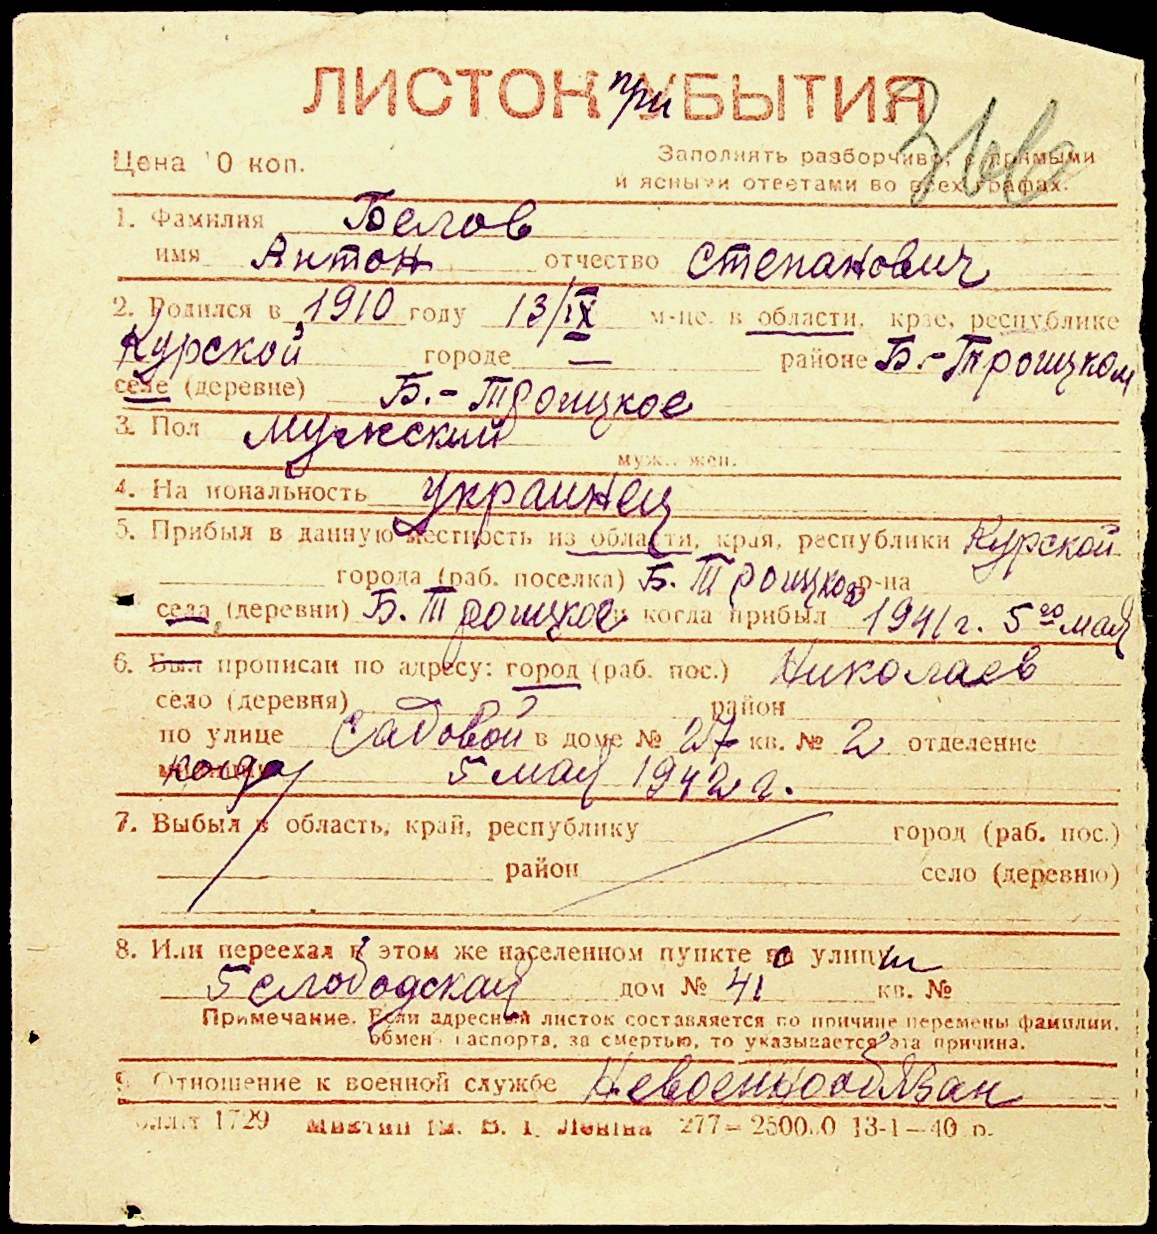 ЛИСТОК при УБЫТИЯ
Цена 10 коп.
Заполнять разборчиво, с прямыми
и ясными ответами во всех графах.
1. Фамилия Белов
имя Антон отчество Степанович
2. Родился в 1910 году 13/IX м-це. в области, крае, республике
Курской городе — районе Б.-Троицком
селе (деревне) Б.-Троицкое
3. Пол мужский
муж., жен.
4. Национальность украинец
5. Прибыл в данную местность из области, края, республики Курской
города (раб. поселка) Б. Троицкое р-на
села (деревни) Б. Троицкое и когда прибыл 1941 г. 5го мая
6. Был прописан по адресу: город (раб. пос.) Николаев
село (деревня) район
по улице Садовой в доме № 27 кв. № 2 отделение
когда 5 мая 1942 г.
7. Выбыл в область, край, республику город (раб. пос.)
район село (деревню)
8. Или переехал в этом же населенном пункте с улицы
5 Слободская дом № 41 кв. №
Примечание. Если адресный листок составляется по причине перемены фамилии,
обмена паспорта, за смертью, то указывается эта причина.
9. Отношение к военной службе Невоеннообязан
1729 им. В. І. Леніна 277— 13-1—40 р.